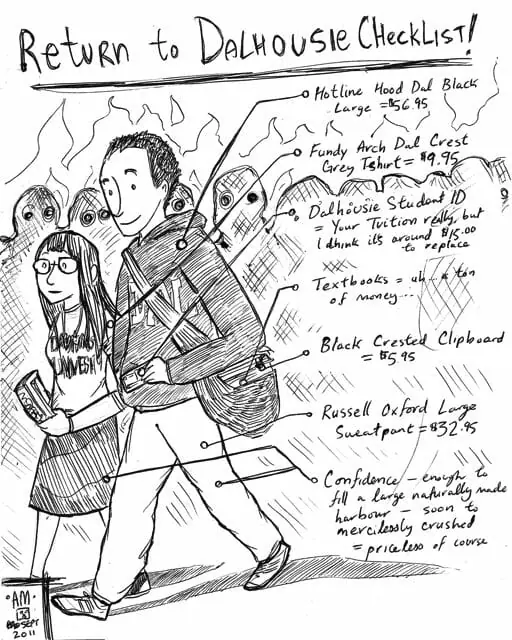 Return to Dalhousie Checklist!
Hotline Hood Dal Black
Large = $56.95
Fundy Arch Dal Crest
Grey Tshirt = $9.95
Dalhousie Student ID
= Your Tuition really, but
I think it's around $15.00
to replace
Textbooks = uh... a ton
of money...
Black Crested Clipboard
= $5.95
Russell Oxford Large
Sweatpant = $32.95
Confidence – enough to
fill a large naturally made
harbour – soon to
mercilessly crushed
= priceless of course
AM
SEPT
2011